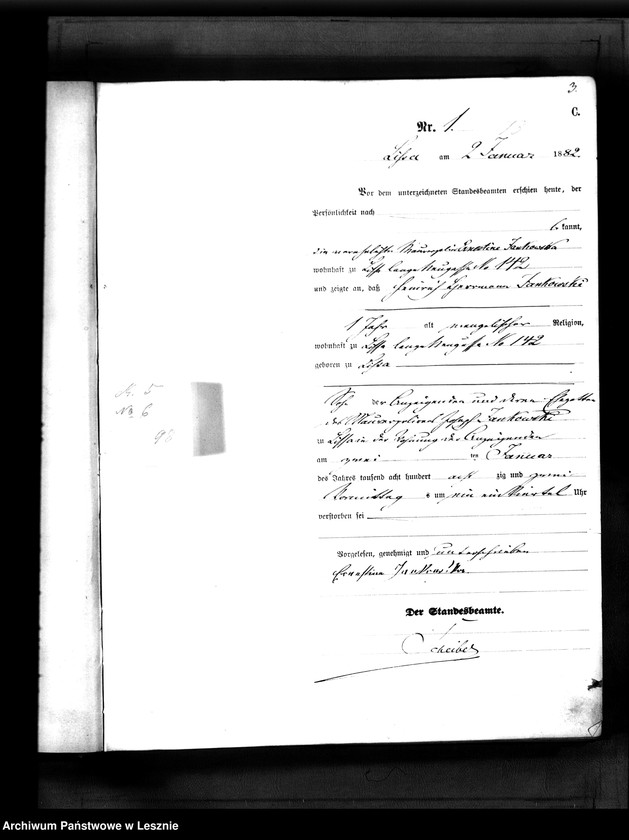 3.
C.
Nr. 1.
Lissa am 2 Januar 1882.
Vor dem unterzeichneten Standesbeamten erschien heute, der
Persönlichkeit nach
bekannt,
die verehelichte Maurerpolier Ernestine Jankowska
wohnhaft zu Lissa lange Neugasse No 142
und zeigte an, daß Heinrich Herrmann Jankowski
1 Jahr alt evangelischer Religion,
wohnhaft zu Lissa lange Neugasse No 142
geboren zu Lissa
Sohn der Anzeigenden und deren Ehegatten
des Maurerpoliers Joseph Jankowski
zu Lissa in der Wohnung der Anzeigenden
am zwei ten Januar
des Jahres tausend acht hundert acht zig und zwei
Vormittag s um ein Viertel Uhr
verstorben sei
Vorgelesen, genehmigt und unterschrieben
Ernestine Jankowska.
Der Standesbeamte.
Scheibel
A. 5
No 6
Archiwum Państwowe w Lesznie